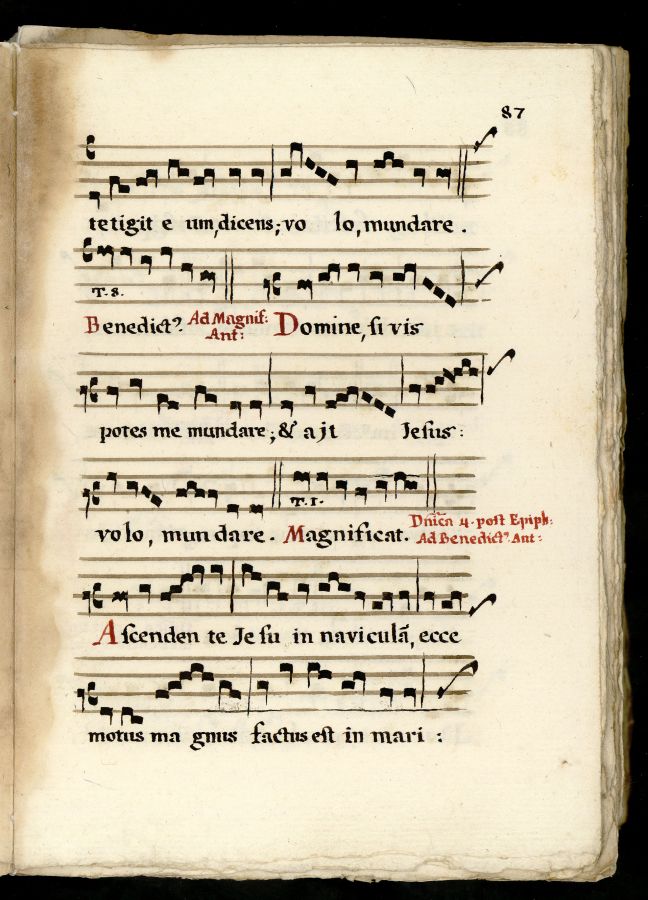 87
tetigit e um, dicens; vo lo, mundare.
T. 8.
Benedictꝰ. Ad Magnif: Ant: Domine, si vis
potes me mundare; & ait Jesus:
T. 1.
volo, mundare. Magnificat. Dnica 4. post Epiph: Ad Benedictꝰ. Ant:
Ascenden te Je su in naviculã, ecce
motus ma gnus factus est in mari: